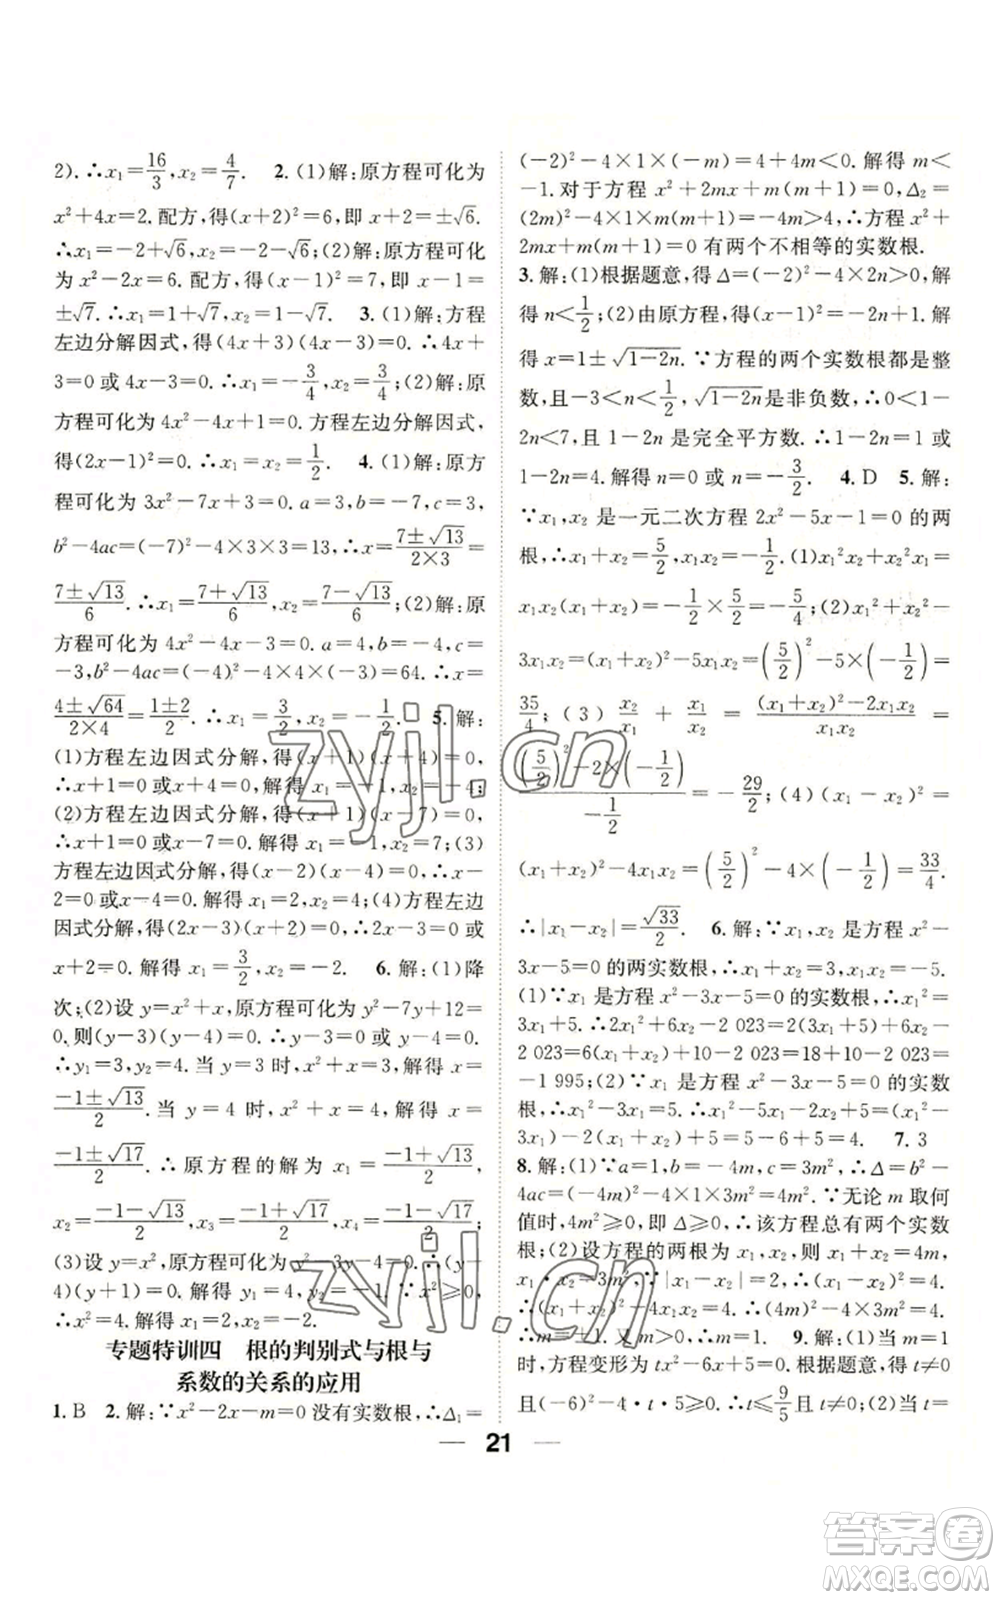 2). ∴x₁=16/3,x₂=4/7. 2. (1)解:原方程可化为
x²+4x=2. 配方,得(x+2)²=6,即 x+2=±√6.
∴x₁=-2+√6,x₂=-2-√6;(2)解:原方程可化
为 x²-2x=6. 配方,得(x-1)²=7,即 x-1=
±√7. ∴x₁=1+√7,x₂=1-√7. 3. (1)解:方程
左边分解因式,得(4x+3)(4x-3)=0. ∴4x+
3=0 或 4x-3=0. ∴x₁=-3/4,x₂=3/4;(2)解:原
方程可化为 4x²-4x+1=0. 方程左边分解因式,
得(2x-1)²=0. ∴x₁=x₂=1/2. 4. (1)解:原方
程可化为 3x²-7x+3=0. a=3,b=-7,c=3,
b²-4ac=(-7)²-4×3×3=13,∴x=(7±√13)/(2×3)=
(7±√13)/6. ∴x₁=(7+√13)/6,x₂=(7-√13)/6;(2)解:原
方程可化为 4x²-4x-3=0. a=4,b=-4,c=
-3,b²-4ac=(-4)²-4×4×(-3)=64. ∴x=
(4±√64)/(2×4)=(1±2)/2. ∴x₁=3/2,x₂=-1/2. 5. 解:
(1)方程左边因式分解,得(x+1)(x+4)=0,
∴x+1=0 或 x+4=0. 解得 x₁=-1,x₂=-4;
(2)方程左边因式分解,得(x+1)(x-7)=0,
∴x+1=0 或 x-7=0. 解得 x₁=-1,x₂=7;(3)
方程左边因式分解,得(x-2)(x-4)=0,∴x-
2=0 或 x-4=0. 解得 x₁=2,x₂=4;(4)方程左边
因式分解,得(2x-3)(x+2)=0,∴2x-3=0 或
x+2=0. 解得 x₁=3/2,x₂=-2. 6. 解:(1)降
次;(2)设 y=x²+x,原方程可化为 y²-7y+12=
0,则(y-3)(y-4)=0. ∴y-3=0 或 y-4=0.
∴y₁=3,y₂=4. 当 y=3 时,x²+x=3,解得 x=
(-1±√13)/2. 当 y=4 时,x²+x=4,解得 x=
(-1±√17)/2. ∴原方程的解为 x₁=(-1+√13)/2,
x₂=(-1-√13)/2,x₃=(-1+√17)/2,x₄=(-1-√17)/2;
(3)设 y=x²,原方程可化为 y²-3y-4=0. ∴(y-
4)(y+1)=0. 解得 y₁=4,y₂=-1. ∵y=x²≥0,
∴x²=4. 解得 x₁=2,x₂=-2.
专题特训四 根的判别式与根与
系数的关系的应用
1. B 2. 解:∵x²-2x-m=0 没有实数根,∴Δ₁=
(-2)²-4×1×(-m)=4+4m<0. 解得 m<
-1. 对于方程 x²+2mx+m(m+1)=0,Δ₂=
(2m)²-4×1×m(m+1)=-4m>4,∴方程 x²+
2mx+m(m+1)=0 有两个不相等的实数根.
3. 解:(1)根据题意,得 Δ=(-2)²-4×2n>0,解
得 n<1/2;(2)由原方程,得(x-1)²=-2n+1. 解
得 x=1±√(1-2n). ∵方程的两个实数根都是整
数,且-3<n<1/2,√(1-2n)是非负数,∴0<1-
2n<7,且 1-2n 是完全平方数. ∴1-2n=1 或
1-2n=4. 解得 n=0 或 n=-3/2. 4. D 5. 解:
∵x₁,x₂ 是一元二次方程 2x²-5x-1=0 的两
根,∴x₁+x₂=5/2,x₁x₂=-1/2. (1)x₁²x₂+x₁x₂²=
x₁x₂(x₁+x₂)=-1/2×5/2=-5/4;(2)x₁²+x₂²-
3x₁x₂=(x₁+x₂)²-5x₁x₂=(5/2)²-5×(-1/2)=
35/4;(3) x₂/x₁ + x₁/x₂ = ((x₁+x₂)²-2x₁x₂)/(x₁x₂) =
((5/2)²-2×(-1/2))/(-1/2)=-29/2;(4)(x₁-x₂)²=
(x₁+x₂)²-4x₁x₂=(5/2)²-4×(-1/2)=33/4,
∴|x₁-x₂|=√33/2. 6. 解:∵x₁,x₂ 是方程 x²-
3x-5=0 的两实数根,∴x₁+x₂=3,x₁x₂=-5.
(1)∵x₁ 是方程 x²-3x-5=0 的实数根,∴x₁²=
3x₁+5. ∴x₁²+3x₁+6x₂-2 023=(3x₁+5)+3x₁+6x₂-
2 023=6(x₁+x₂)+5-2 023=18+10-2 023=
-1 995;(2)∵x₁ 是方程 x²-3x-5=0 的实数
根,∴x₁²-3x₁=5. ∴x₁²-5x₁-2x₂=(x₁²-
3x₁)-2(x₁+x₂)+5=5-6+5=4. 7. 3
8. 解:(1)∵a=1,b=-4m,c=3m²,∴Δ=b²-
4ac=(-4m)²-4×1×3m²=4m². ∵无论 m 取何
值时,4m²≥0,即 Δ≥0,∴该方程总有两个实数
根;(2)设方程的两根为 x₁,x₂,则 x₁+x₂=4m,
x₁·x₂=3m². ∵|x₁-x₂|=2,∴(x₁-x₂)²=4.
∴(x₁+x₂)²-4x₁x₂=4. ∴(4m)²-4×3m²=4.
∴m=±1. ∵m>0,∴m=1. 9. 解:(1)当 m=3
时,方程变形为 tx²-6x+5=0. 根据题意,得 t≠0
且(-6)²-4·t·5≥0,∴t≤9/5 且 t≠0;(2)当 t=
21
zyjl.cn
zyjl.cn
答案圈
MXQE.COM